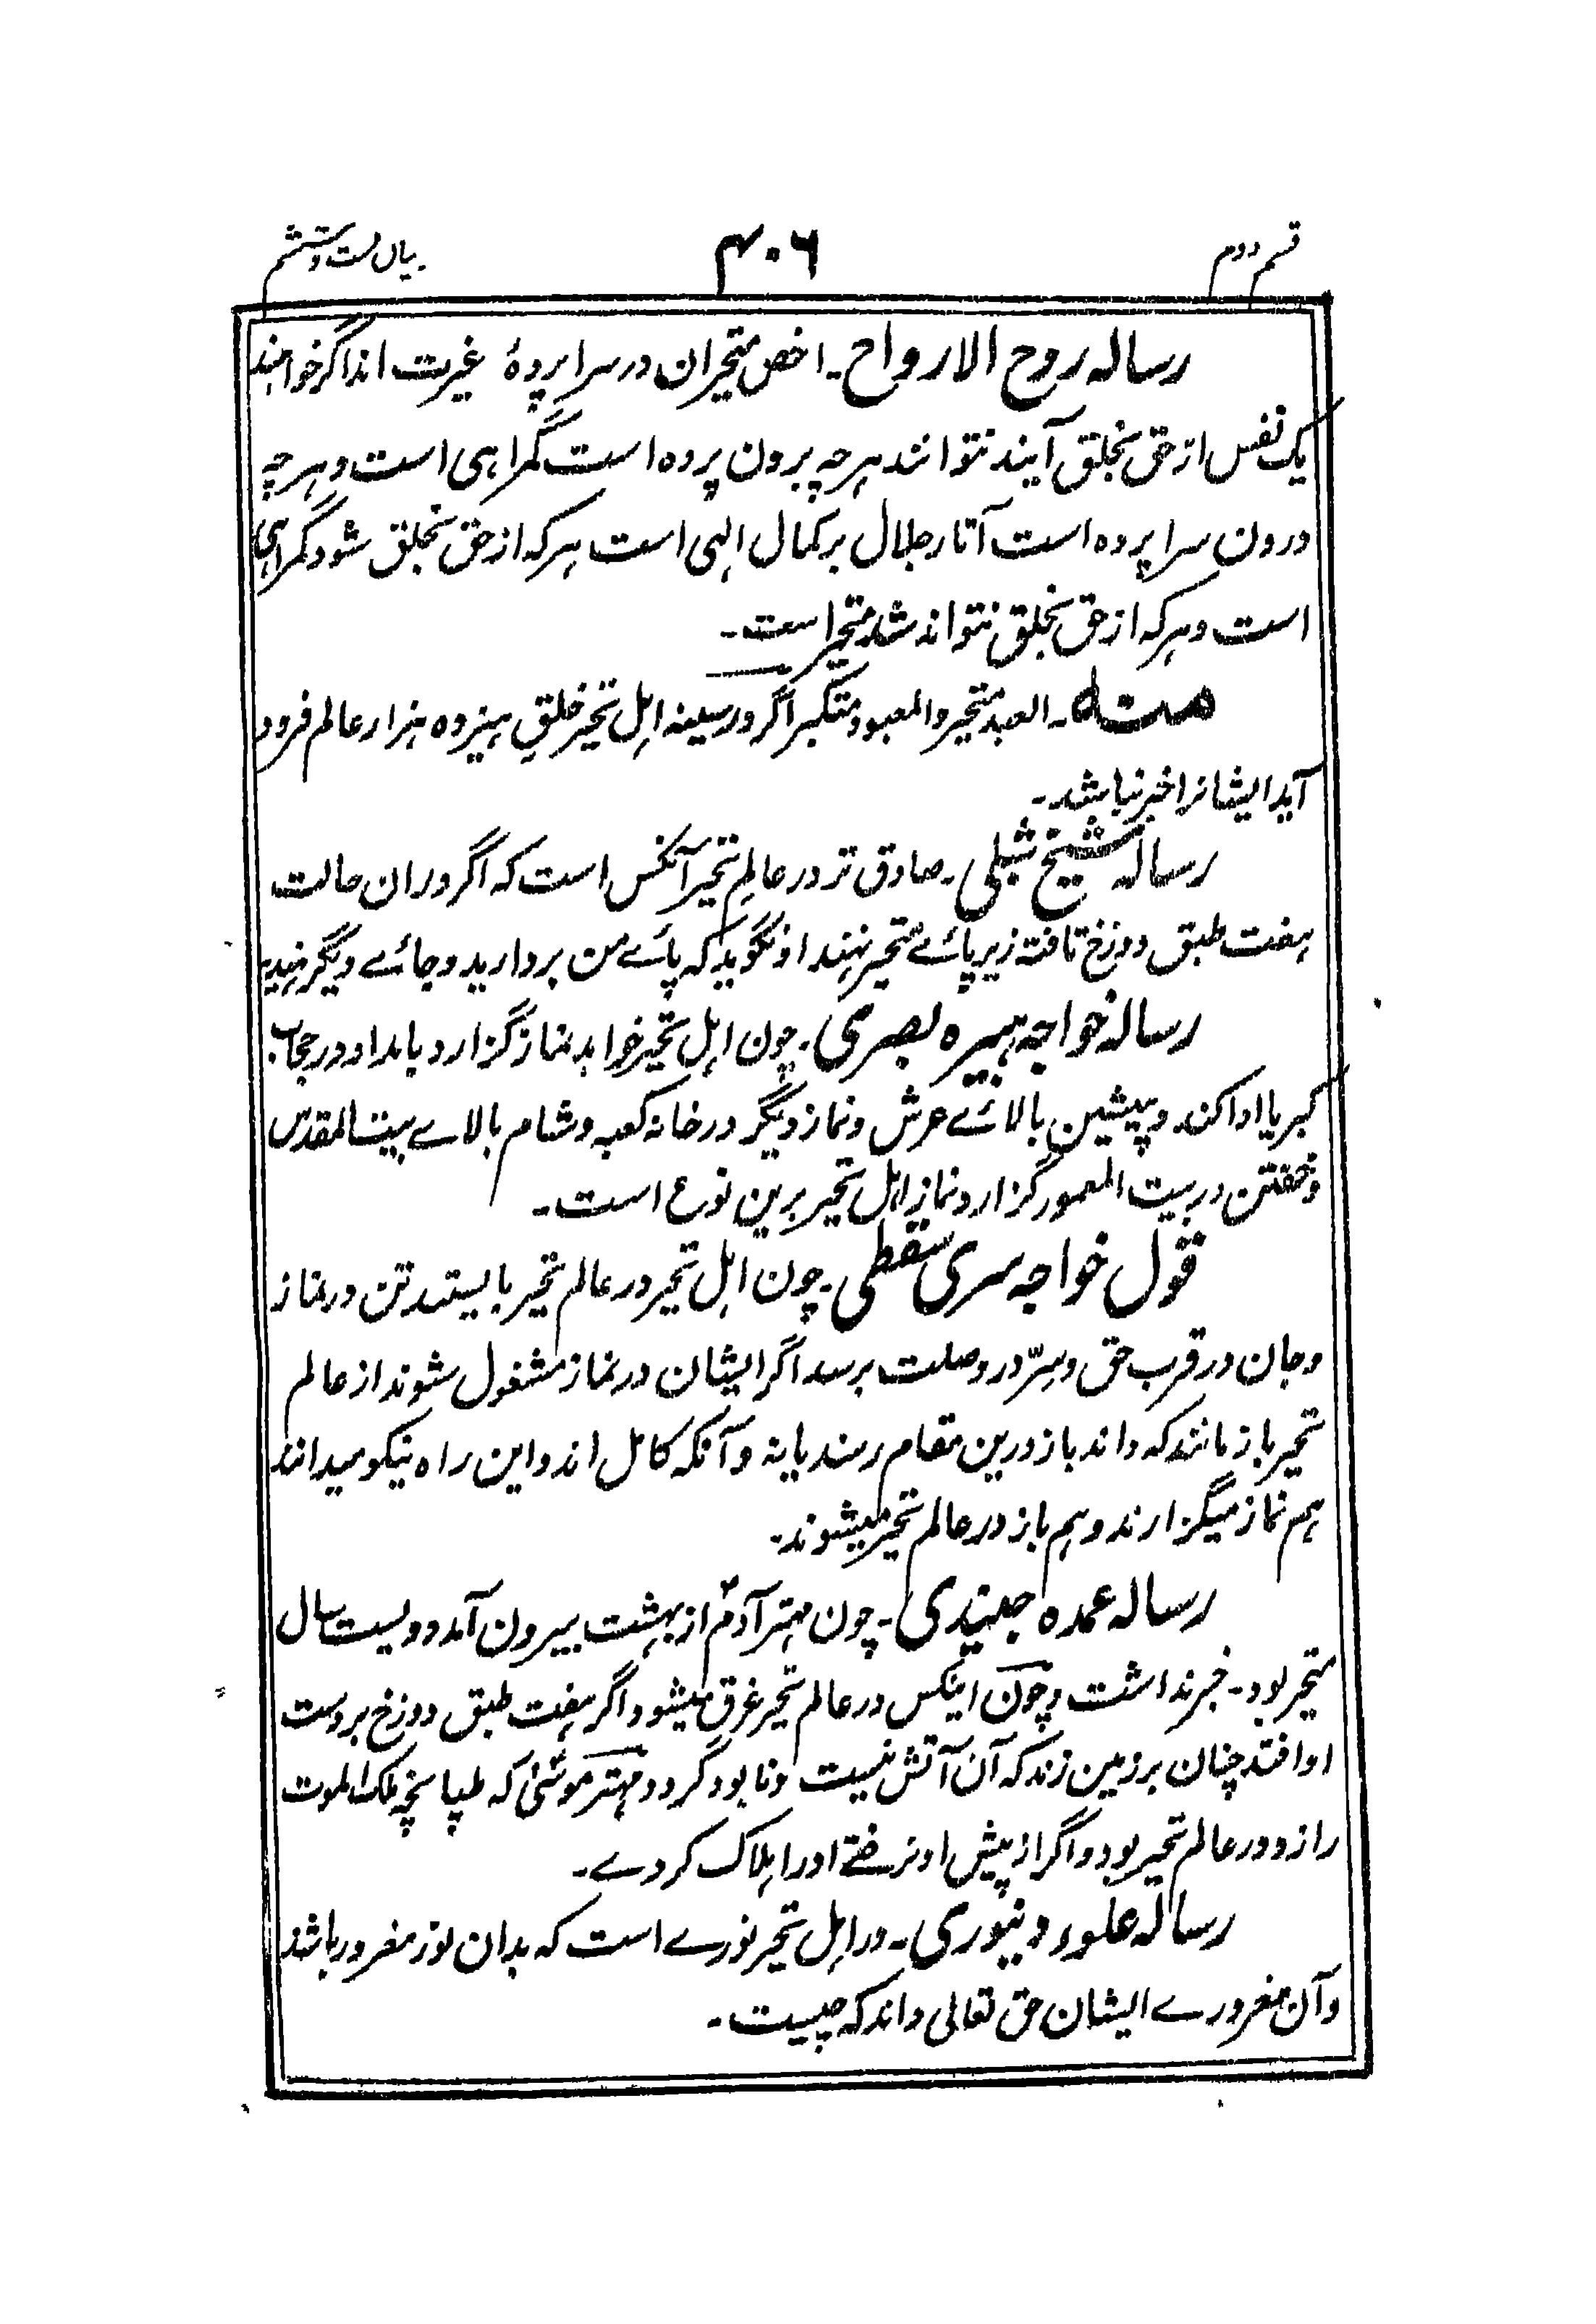 قسم دوم
۴۰۶
بیان بست و ششم
رساله روح الارواح۔ اخص متحیران در سراپردهٔ غیرت اند اگر خواهند
یک نفس از حق بخلق آیند نتوانند هرچه برون پرده است گمراهی است و هرچه
درون سراپرده است آثار جلال بر کمال الهی است هرکه از حق بخلق شود گمراهی
است و هرکه از حق بخلق نتواند شد متحیر است۔
منه۔ العبد متحیر والمعبود متکبر اگر در سینه اهل تحیر خلقِ هیزده هزار عالم فرود
آید ایشانرا خبر نباشد۔
رساله شیخ شبلی۔ صادق تر در عالم تحیر آنکس است که اگر دران حالت
هفت طبق دوزخ تافته زیر پائے متحیر نهند او نگوید که پائے من بردارید و جائے دیگر نهید۔
رساله خواجه هبیره بصری۔ چون اهل تحیر خواهد نماز گزارد بامداد در حجاب
کبریا ادا کند و پیشین بالائے عرش و نماز دیگر در خانه کعبه و شام بالاے بیت المقدس
و خفتن در بیت المعمور گزارد و نماز اهل تحیر برین نوع است۔
قول خواجه سری سقطی۔ چون اهل تحیر در عالم تحیر بایستد تن در نماز
و جان در قرب حق و سِرّ در وصلت برسد اگر ایشان در نماز مشغول شوند از عالم
تحیر باز مانند که داند باز درین مقام رسند یا نه و آنکه کامل اند و این راه نیکو میدانند
هم نماز میگزارند و هم باز در عالم تحیر میشوند۔
رساله عمده جنیدی۔ چون مهتر آدمؑ از بهشت بیرون آمد دویست سال
متحیر بود۔ خبر نداشت و چون اینکس در عالم تحیر غرق میشود اگر هفت طبق دوزخ بردست
او افتد چنان بر زمین زند که آن آتش نیست و نابود گردد و مهتر موسیٰ که طپانچه ملک الموت
را زد در عالم تحیر بود و اگر از پیش او نرفتے او را هلاک کردے۔
رساله علوء دینوری۔ در اهل تحیر نورے است که بدان نور مغرور باشد
و آن مغرورے ایشان حق تعالی داند که چیست۔